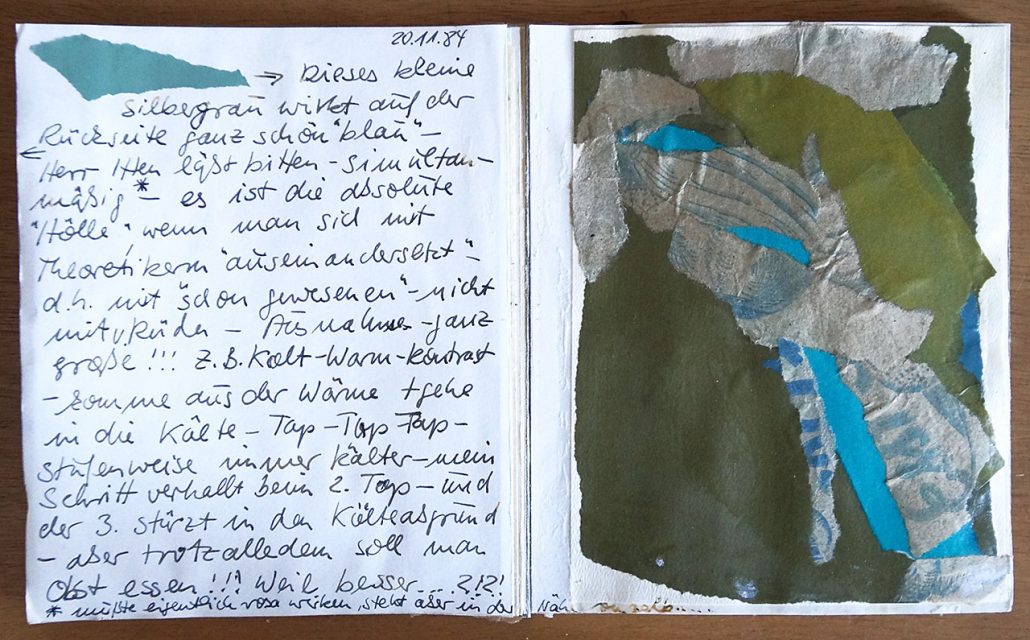 20.11.84
→ Dieses kleine
silbergrau wirkt auf der
Rückseite ganz schön "blau" –
← Herr Itten läßt bitten – simultan-
mäßig * – es ist die absolute
"Hölle", wenn man sich mit
Theoretikern "auseinandersetzt" –
d.h. mit "schon gewesenen" – nicht
– Ausnahmen – ganz
große!!! z.B. Kalt-Warm-Kontrast
– komme aus der Wärme + gehe
in die Kälte – Tap – Tap – Tap –
stufenweise immer kälter – mein
Schritt verhallt beim 2. Tap – und
der 3. stürzt in den Kälteabgrund
– aber trotzalledem soll man
Obst essen!!!! Weil besser....?!?!
* müßte eigentlich rosa wirken, steht aber in der Nähe von